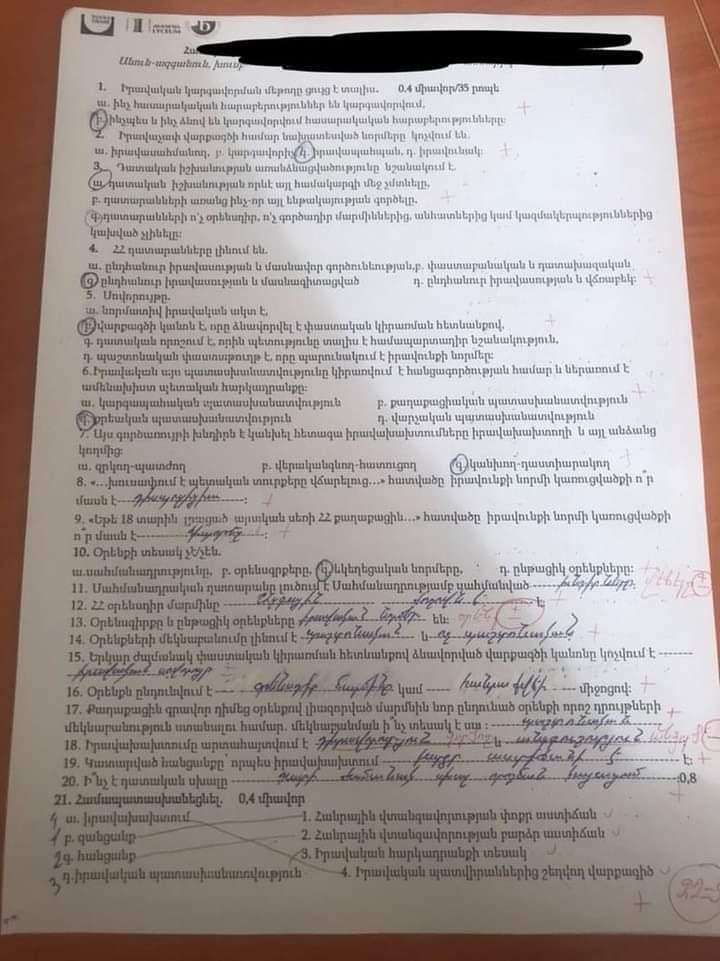 Անուն-ազգանուն, խումբ
1. Իրավական կարգավորման մեթոդը ցույց է տալիս. 0.4 միավոր/35 րոպե
ա. ինչ հասարակական հարաբերություններ են կարգավորվում,
բ. ինչպես և ինչ ձևով են կարգավորվում հասարակական հարաբերությունները:
2. Իրավաչափ վարքագծի համար նախատեսված նորմերը կոչվում են.
ա. իրավասահմանող, բ. կարգավորիչ, գ. իրավապահպան, դ. իրավունակ:
3. Դատական իշխանության առանձնացվածությունը նշանակում է.
ա. դատական իշխանության որևէ այլ համակարգի մեջ չմտնելը,
բ. դատարանների առանց ինչ-որ այլ ենթակայության գործելը,
գ. դատարանների ո՛չ օրենսդիր, ո՛չ գործադիր մարմիններից, անհատներից կամ կազմակերպություններից
կախված չլինելը:
4. ՀՀ դատարանները լինում են.
ա. ընդհանուր իրավասության և մասնավոր գործունեության, բ. փաստաբանական և դատախազական
գ ընդհանուր իրավասության և մասնագիտացված դ. ընդհանուր իրավասության և վճռաբեկ:
5. Սովորույթը.
ա. նորմատիվ իրավական ակտ է,
բ. վարքագծի կանոն է, որը ձևավորվել է փաստական կիրառման հետևանքով,
գ. դատական որոշում է, որին պետությունը տալիս է համապարտադիր նշանակություն,
դ. պաշտոնական փաստաթուղթ է, որը պարունակում է իրավունքի նորմեր:
6. Իրավական այս պատասխանատվությունը կիրառվում է հանցագործության համար և ներառում է
ամենախիստ պետական հարկադրանքը:
ա. կարգապահական պատասխանատվություն բ. քաղաքացիական պատասխանատվություն
գ. քրեական պատասխանատվություն դ. վարչական պատասխանատվություն
7. Այս գործառույթի խնդիրն է կանխել հետագա իրավախախտումները իրավախախտողի և այլ անձանց
կողմից:
ա. զրկող-պատժող բ. վերականգնող-հատուցող գ կանխող-դաստիարակող
8. «...խուսափում է պետական տուրքերը վճարելուց...» հատվածը իրավունքի նորմի կառուցվածքի ո՞ր
մասն է---դիսպոզիցիա---:
9. «Եթե 18 տարին լրացած արական սեռի ՀՀ քաղաքացին...» հատվածը իրավունքի նորմի կառուցվածքի
ո՞ր մասն է---հիպոթեզ---:
10. Օրենքի տեսակ չէ/չեն.
ա.սահմանադրությունը, բ. օրենսգրքերը, գ եկեղեցական նորմերը, դ. ընթացիկ օրենքները:
11. Սահմանադրական դատարանը լուծում է Սահմանադրությամբ սահմանված --- խնդիրները
12. ՀՀ օրենսդիր մարմինը --- Ազգային ժողովն է --- է:
13. Օրենսգիրքը և ընթացիկ օրենքները իրավական նորմեր --- են:
14. Օրենքների մեկնաբանումը լինում է - պաշտոնական --- և ոչ պաշտոնական
15. Երկար ժամանակ փաստական կիրառման հետևանքով ձևավորված վարքագծի կանոնը կոչվում է -------
իրավական սովորույթ
16. Օրենքն ընդունվում է --- օրենսդիր մարմին. կամ ---- հանրաքվեի --- միջոցով:
17. Քաղաքացին գրավոր դիմեց օրենքով լիազորված մարմնին նոր ընդունած օրենքի որոշ դրույթների
մեկնաբանություն ստանալու համար. մեկնաբանման ի՞նչ տեսակ է սա : ---- պաշտոնական ----
18. Իրավախախտումը արտահայտվում է գործողություն և --- անգործություն
19. Կատարված հանցանքը՝ որպես իրավախախտում --- է:
20. Ի՞նչ է դատական սխալը ---- 0,8
21. Համապատասխանեցնել. 0,4 միավոր
4 ա. իրավախախտում 1. Հանրային վտանգավորության փոքր աստիճան
1 բ. զանցանք 2. Հանրային վտանգավորության բարձր աստիճան
2 գ. հանցանք 3. Իրավական հարկադրանքի տեսակ
3 դ.իրավական պատասխանատվություն 4. Իրավական պատվիրաններից շեղվող վարքագիծ